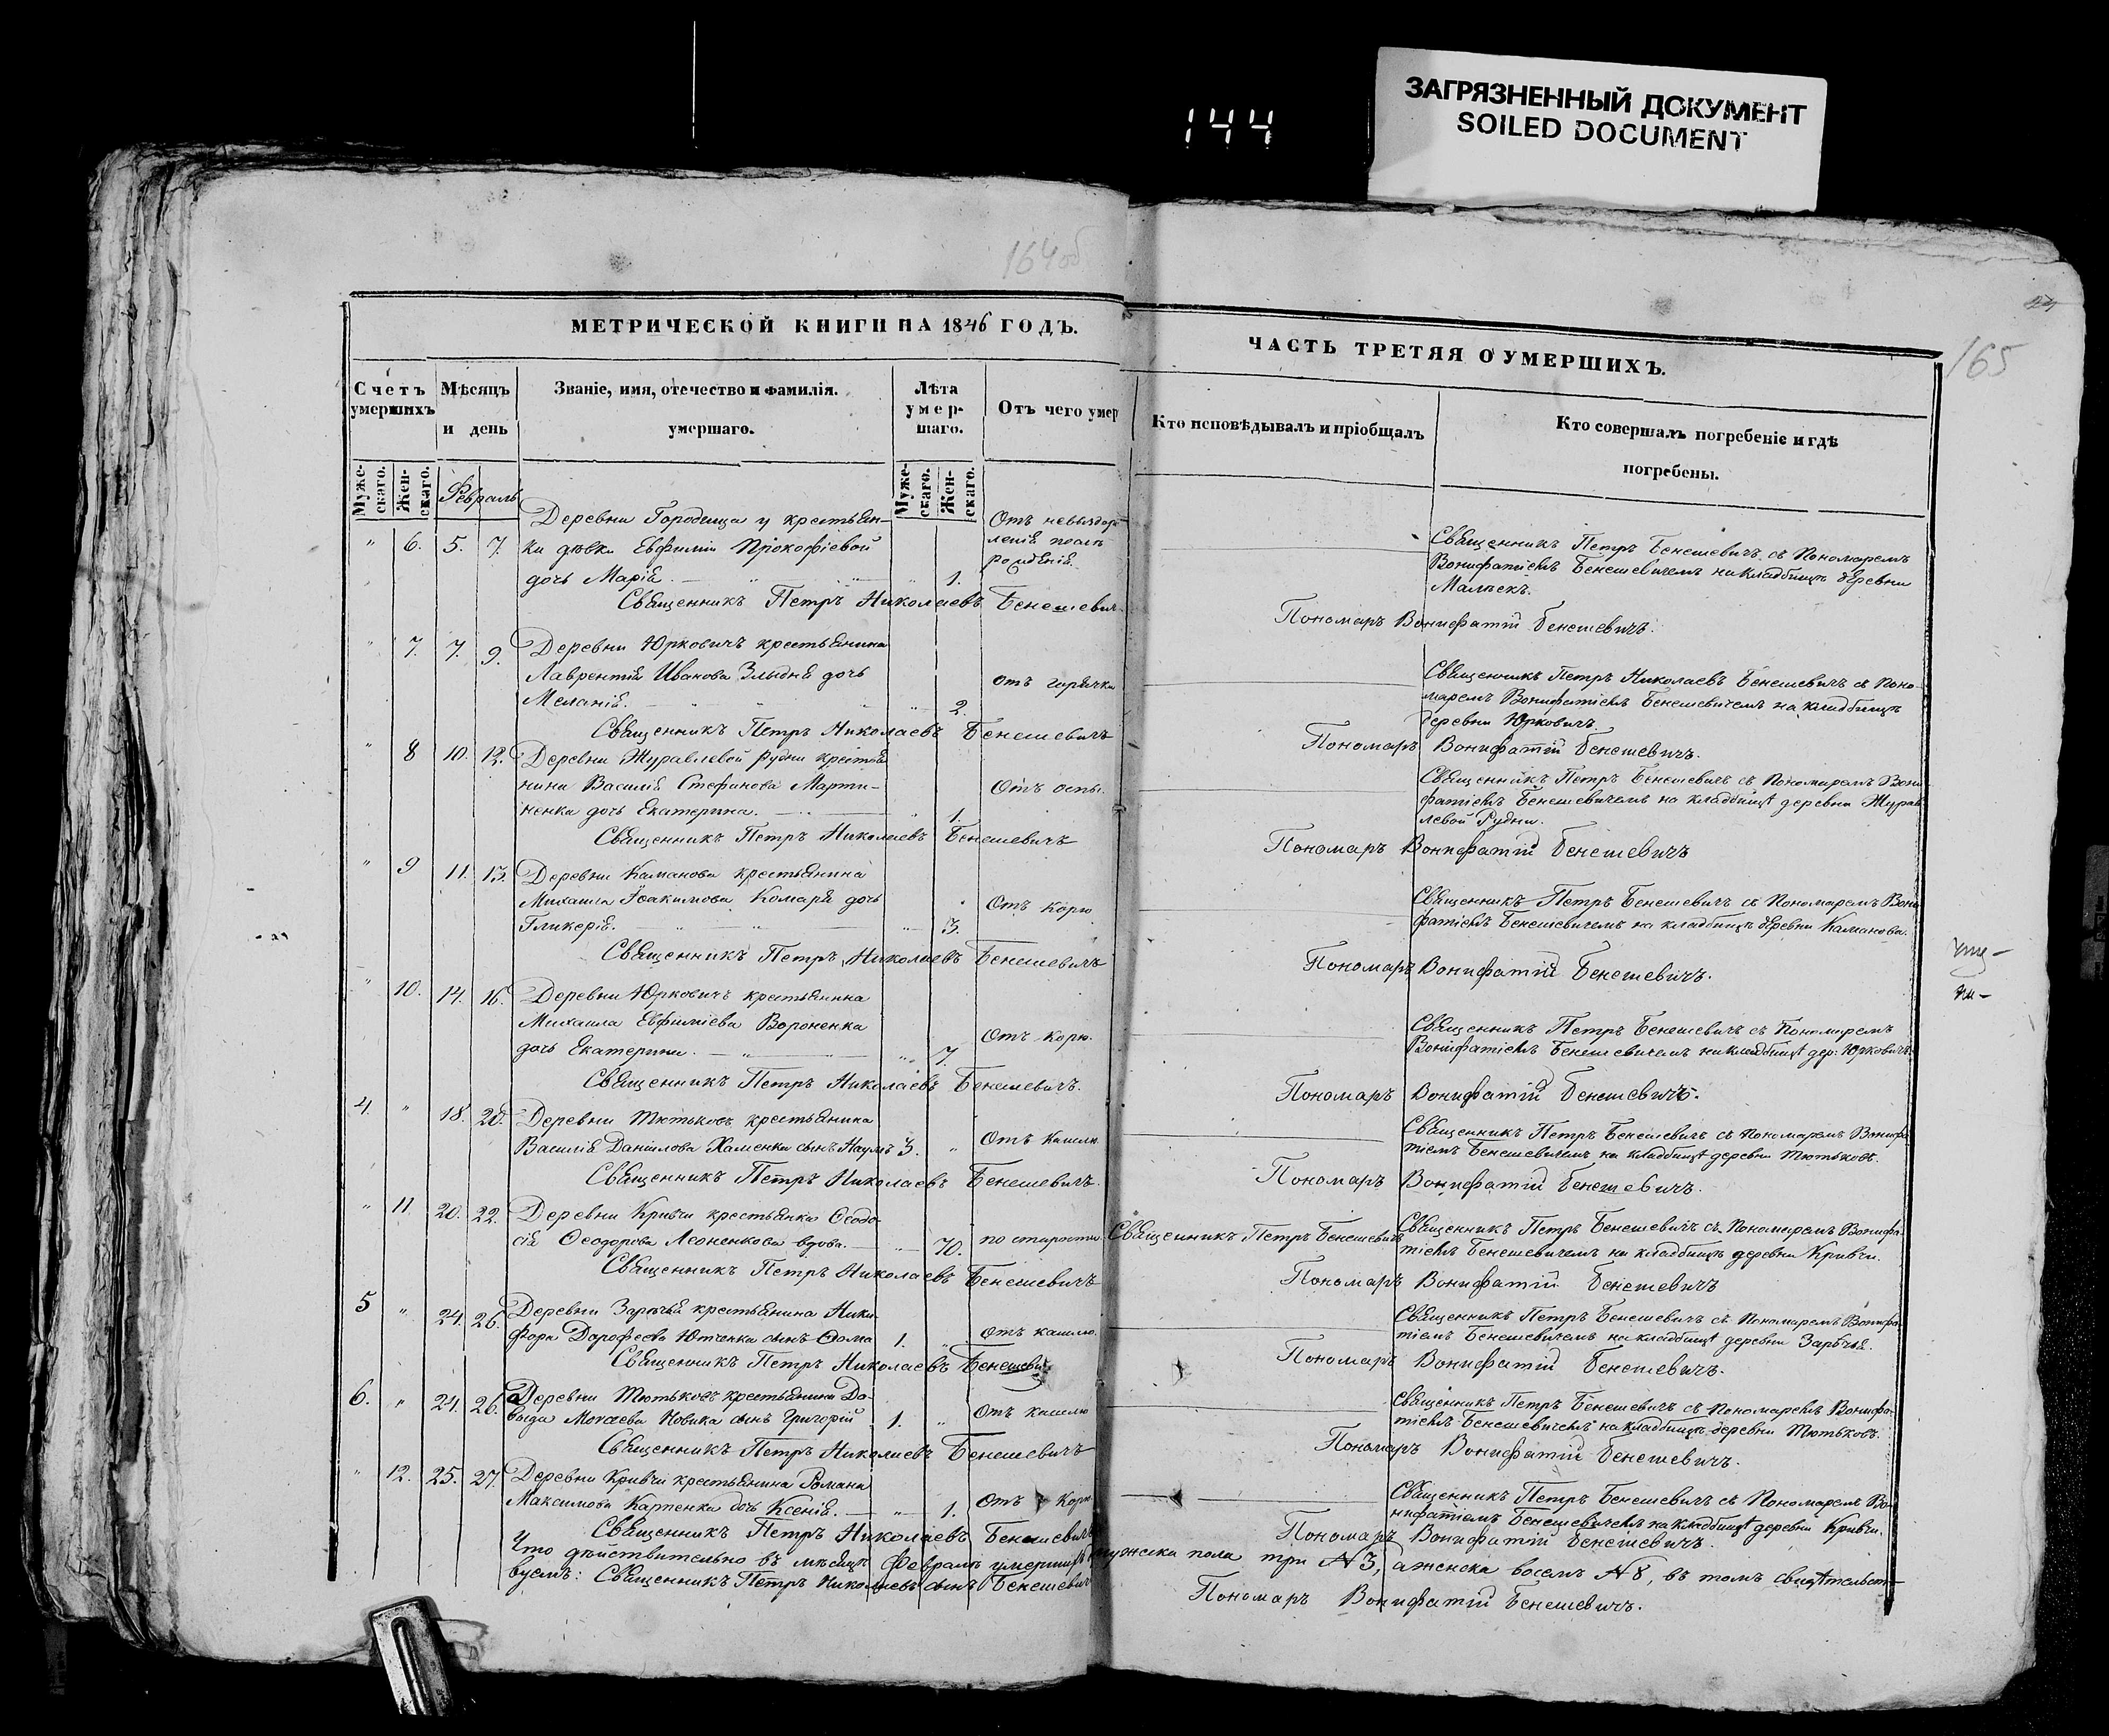 144
ЗАГРЯЗНЕННЫЙ ДОКУМЕНТ
SOILED DOCUMENT
164об
24
165
МЕТРИЧЕСКОЙ КНИГИ НА 1846 ГОДЪ.
ЧАСТЬ ТРЕТЯЯ О УМЕРШИХЪ.
Счетъ умершихъ
Мѣсяцъ и день
Званіе, имя, отечество и фамилія.
умершаго.
Лѣта умер-шаго.
Отъ чего умер
Кто исповѣдывалъ и пріобщалъ
Кто совершалъ погребеніе и гдѣ
погребены.
Муже-скаго.
Жен-скаго.
Февраль
Муже-скаго.
Жен-скаго.
Деревни Городища у крестьян-
" 6. 5. 7. ки дѣвки Евфиміи Прокофіевой
дочь Марія. 1.
Отъ невыздор
ленія послѣ
рожденія
Священникъ Петръ Бенешевичъ съ Пономаремъ
Вонифатіемъ Бенешевичемъ на кладбищѣ деревни
Малѣекъ.
Священникъ Петръ Николаевъ Бенешевич
Пономаръ Вонифатій Бенешевичъ.
" 7. 7. 9. Деревни Юрковичъ крестьянина
Лаврентія Иванова Злыдня дочь
Меланія. 2.
отъ горячки
Священникъ Петръ Николаевъ Бенешевичъ съ Поно-
маремъ Вонифатіемъ Бенешевичемъ на кладбищѣ
деревни Юрковичъ
Священникъ Петръ Николаевъ Бенешевичъ
Пономаръ Вонифатій Бенешевичъ.
" 8 10. 12. Деревни Журавлевой Рудни крестья
нина Василія Стефанова Марти-
ненка дочь Екатерина. 1.
Отъ оспы.
Священникъ Петръ Бенешевичъ съ Пономаремъ Вони
фатіемъ Бенешевичемъ на кладбищѣ деревни Журав
левой Рудни.
Священникъ Петръ Николаевъ Бенешевичъ
Пономаръ Вонифатій Бенешевичъ
" 9 11. 13. Деревни Каманова крестьянина
Михаила Іоакимова Комаря дочь
Гликерія. 3.
Отъ Корю
Священникъ Петръ Бенешевичъ съ Пономаремъ Вони
фатіемъ Бенешевичемъ на кладбищѣ деревни Каманова.
Священникъ Петръ Николаевъ Бенешевичъ
Пономаръ Вонифатій Бенешевичъ.
" 10. 14. 16. Деревни Юрковичъ крестьянина
Михаила Евфиміева Вороненка
дочь Екатерина. 7.
Отъ Корю.
Священникъ Петръ Бенешевичъ съ Пономаремъ
Вонифатіемъ Бенешевичемъ на кладбищѣ дер: Юрковичъ.
Священникъ Петръ Николаевъ Бенешевичъ.
Пономаръ Вонифатій Бенешевичъ.
4. " 18. 20. Деревни Тютьковъ крестьянина
Василія Данилова Хаменка сынъ Наумъ 3. "
Отъ Кашлю
Священникъ Петръ Бенешевичъ съ Пономаремъ Вонифа
тіемъ Бенешевичемъ на кладбищѣ деревни Тютьковъ.
Священникъ Петръ Николаевъ Бенешевичъ.
Пономаръ Вонифатій Бенешевичъ.
" 11 20. 22. Деревни Кривчи крестьянка Ѳеодо-
сія Ѳеодорова Леоненкова вдова. 70.
по старости
Священникъ Петръ Бенешевичъ
Священникъ Петръ Бенешевичъ съ Пономаремъ Вонифа-
тіемъ Бенешевичемъ на кладбищѣ деревни Кривчи.
Священникъ Петръ Николаевъ Бенешевичъ
Пономаръ Вонифатій Бенешевичъ
5 " 24. 26. Деревни Зарѣчья крестьянина Ники
фора Дорофеева Ютченка сынъ Ѳома 1. "
Отъ кашлю.
Священникъ Петръ Бенешевичъ съ Пономаремъ Вонифа
тіемъ Бенешевичемъ на кладбищѣ деревни Зарѣчья.
Священникъ Петръ Николаевъ Бенешеви
Пономаръ Вонифатій Бенешевичъ.
6. " 24. 26. Деревни Тютьковъ крестьянина Да-
выда Моисеева Новика сынъ Григорій 1. "
Отъ кашлю
Священникъ Петръ Бенешевичъ съ Пономаремъ Вонифа-
тіемъ Бенешевичемъ на кладбищѣ деревни Тютьковъ.
Священникъ Петръ Николаевъ Бенешевичъ
Пономаръ Вонифатій Бенешевичъ.
" 12. 25. 27. Деревни Кривчи крестьянина Романа
Максимова Карпенка дочь Ксенія. 1.
Отъ Корю
Священникъ Петръ Бенешевичъ съ Пономаремъ Во-
нифатіемъ Бенешевичемъ на кладбищѣ деревни Кривчи.
Священникъ Петръ Николаевъ Бенешевичъ
Пономаръ Вонифатій Бенешевичъ.
Что дѣйствительно въ мѣсяцѣ Февралѣ умершихъ мужска пола три №3, аженска восемъ №8, въ томъ свидѣтельст-
вуемъ: Священникъ Петръ Николаевъ сынъ Бенешевич
Пономаръ Вонифатій Бенешевичъ.